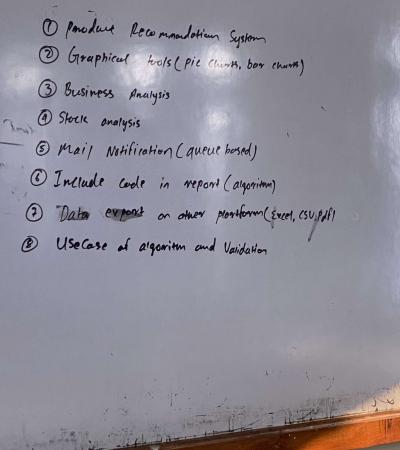 ① Product Recommendation System
② Graphical tools (pie charts, bar charts)
③ Business Analysis
④ Stock analysis
⑤ Mail Notification (queue based)
⑥ Include code in report (algorithm)
⑦ Data export on other platform (Excel, CSV, pdf)
⑧ Usecase of algorithm and Validation